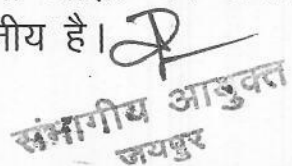 नीय है।
संभागीय आयुक्त
जयपुर